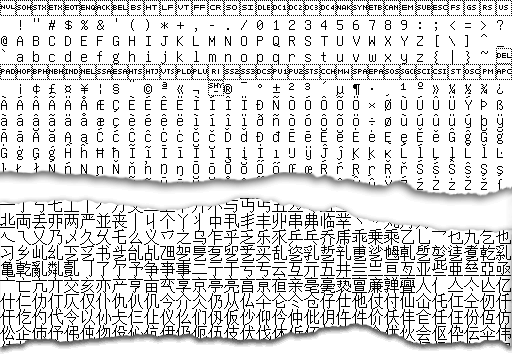 NUL SOH STX ETX EOT ENQ ACK BEL BS HT LF VT FF CR SO SI DLE DC1 DC2 DC3 DC4 NAK SYN ETB CAN EM SUB ESC FS GS RS US
! " # $ % & ' ( ) * + , - . / 0 1 2 3 4 5 6 7 8 9 : ; < = > ?
@ A B C D E F G H I J K L M N O P Q R S T U V W X Y Z [ \ ] ^ _
` a b c d e f g h i j k l m n o p q r s t u v w x y z { | } ~ DEL
PAD HOP BPH NBH IND NEL SSA ESA HTS HTJ VTS PLD PLU RI SS2 SS3 DCS PU1 PU2 STS CCH MW SPA EPA SOS SGC SCI CSI ST OSC PM APC
¡ ¢ £ ¤ ¥ ¦ § ¨ © ª « ¬ SHY ® ¯ ° ± ² ³ ´ µ ¶ · ¸ ¹ º » ¼ ½ ¾ ¿
À Á Â Ã Ä Å Æ Ç È É Ê Ë Ì Í Î Ï Ð Ñ Ò Ó Ô Õ Ö × Ø Ù Ú Û Ü Ý Þ ß
à á â ã ä å æ ç è é ê ë ì í î ï ð ñ ò ó ô õ ö ÷ ø ù ú û ü ý þ ÿ
Ā ā Ă ă Ą ą Ć ć Ĉ ĉ Ċ ċ Č č Ď ď Đ đ Ē ē Ĕ ĕ Ė ė Ę ę Ě ě Ĝ ĝ Ğ ğ
Ġ ġ Ģ ģ Ĥ ĥ Ħ ħ Ĩ ĩ Ī ī Ĭ ĭ Į į İ ı Ĳ ĳ Ĵ ĵ Ķ ķ ĸ Ĺ ĺ Ļ ļ Ľ ľ Ŀ
ŀ Ł ł Ń ń Ņ ņ Ň ň ŉ Ŋ ŋ Ō ō Ŏ ŏ Ő ő Œ œ Ŕ ŕ Ŗ ŗ Ř ř Ś ś Ŝ ŝ Ş ş
丠両丢丣两严並丧丨丩个丫丬中丮丯丰丱串丳临丵
乀乁乂乃乄久乆乇么义乊之乌乍乎乏乐乑乒乓乔乕乖乗乘乙乚乛乜九乞也
习乡乢乣乤乥书乧乨乩乪乫乬乭乮乯买乱乲乳乴乵乶乷乸乹乺乻乼乽乾乿
亀亁亂亃亄亅了亇予争亊事二亍于亏亐云互亓五井亖亗亘亙亚些亜亝亞亟
亠亡亢亣交亥亦产亨亩亪享京亭亮亯亰亱亲亳亴亵亶亷亸亹人亻亼亽亾亿
什仁仂仃仄仅仆仇仈仉今介仌仍从仏仐仑仒仓仔仕他仗付仙仚仛仜仝仞仟
仠仡仢代令以仦仧仨仩仪仫们仭仮仯仰仱仲仳仴仵件价仸仹仺任仼份仾仿
伀企伂伃伄伅伆伇伈伉伊伋伌伍伎伏伐休伒伓伔伕伖众优伙会伛伜伝伞伟